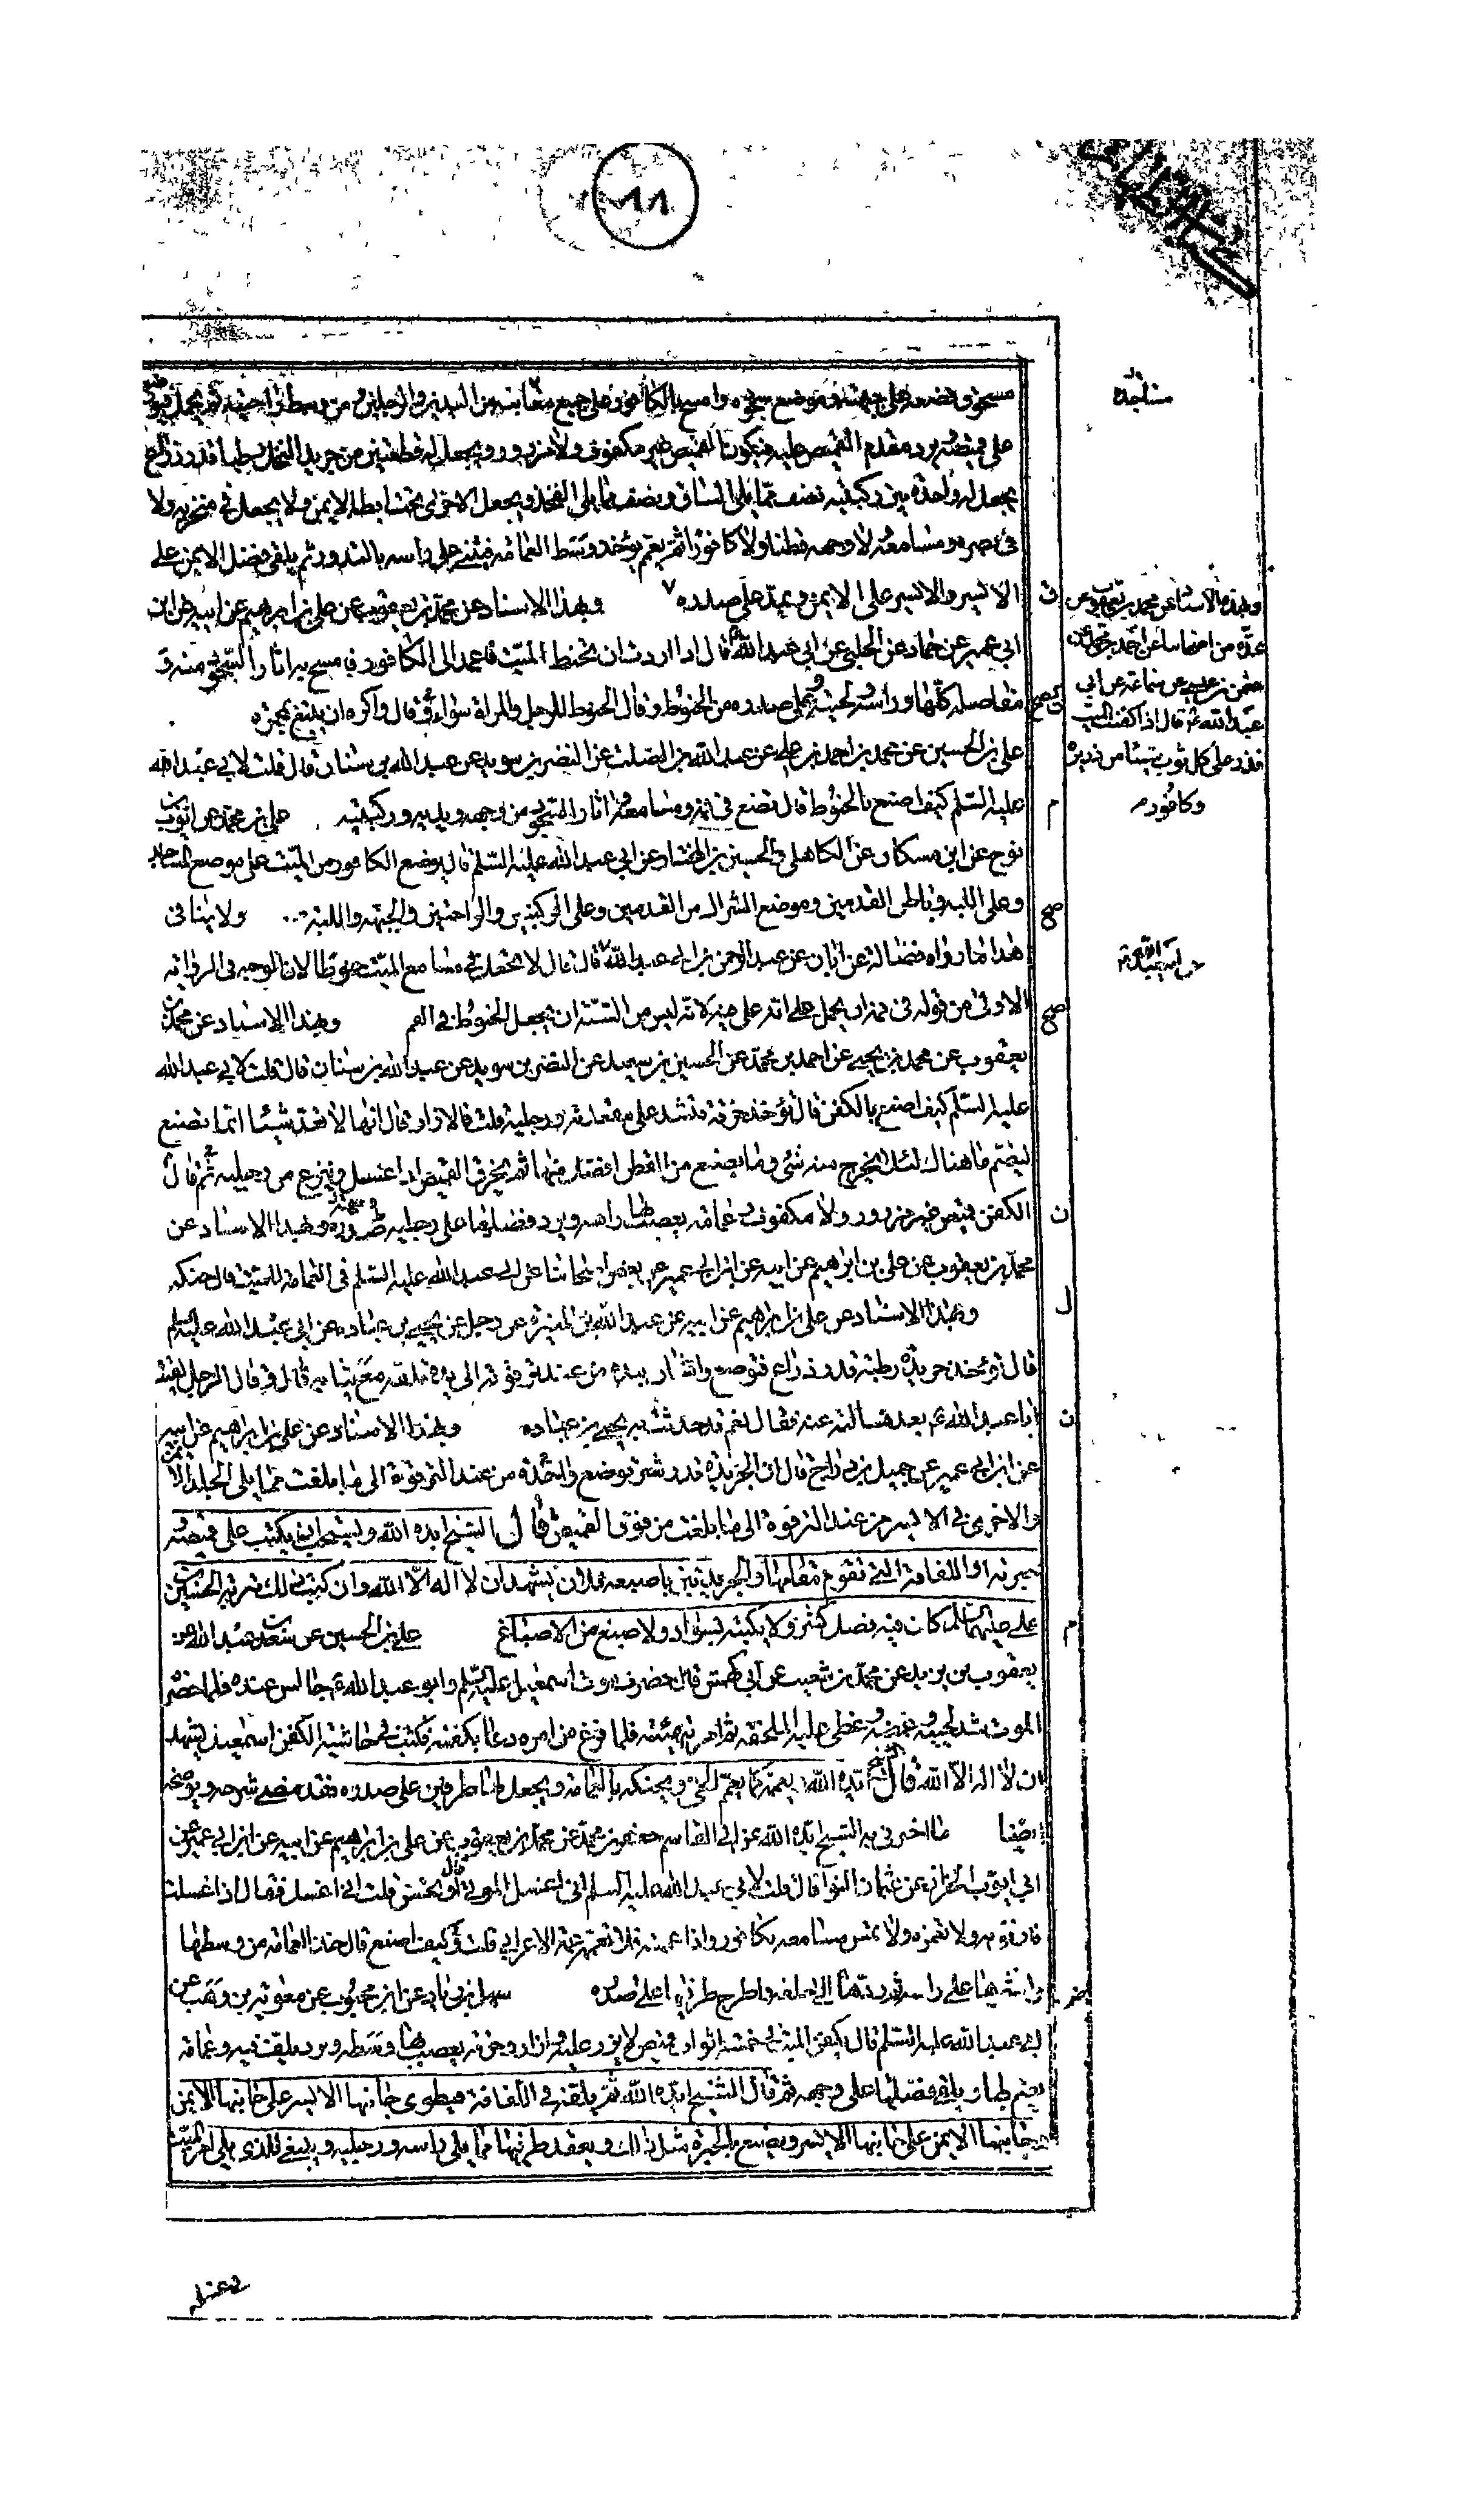 مسحوق فضعه على جبهته وموضع سجوده وامسح بالكافور على جميع مغابنه من اليدين والرجلين ومن وسط راحتيه ثم يحمل فيوضع
على قميصه ويرد مقدم القميص عليه فيكون القميص غير مكفوف ولا مزرور ويجعل له قطعتين من جريد النخل رطبا قدر ذراع
يجعل له واحدة بين ركبتيه نصف مما يلي الساق ونصف مما يلي الفخذ ويجعل الاخرى تحت ابطه الايمن ولا يجعل في منخريه ولا
في بصره ومسامعه ولا وجهه قطنا ولا كافورا ثم يعمم يؤخذ وسط العمامة فيثنى على راسه بالتدوير ثم يلقى فضل الايمن على
الايسر والايسر على الايمن ويمد على صدره وبهذا الاسناد عن محمد بن يعقوب عن علي بن ابرهيم عن ابيه عن ابن
ابي عمير عن حماد عن الحلبي عن ابي عبد الله قال اذا اردت ان تحنط الميت فاعمد الى الكافور فامسح به اثار السجود منه و
مفاصله كلها وراسه ولحيته وعلى صدره من الحنوط وقال الحنوط للرجل والمراة سواء وقال واكره ان يتبع بمجمرة
علي بن الحسين عن محمد بن احمد بن علي عن عبد الله بن الصلت عن النضر بن سويد عن عبد الله بن سنان قال قلت لابي عبد الله
عليه السلم كيف اصنع بالحنوط قال تضع في فمه ومسامعه واثار السجود من وجهه ويديه وركبتيه علي بن محمد عن ايوب بن
نوح عن ابن مسكان عن الكاهلي والحسين بن المختار عن ابي عبد الله عليه السلم قال يوضع الكافور من الميت على موضع المساجد
وعلى اللبة وباطن القدمين وموضع الشراك من القدمين وعلى الركبتين والراحتين والجبهة واللبة ولا ينافي
هذا ما رواه فضالة عن ابان عن عبد الرحمن بن ابي عبد الله قال قال لا تجعل في مسامع الميت حنوطا لان الوجه في الرواية
الاولى من قوله في فمه ان يحمل على انه على فيه لانه ليس من السنة ان يجعل الحنوط في الفم وبهذا الاسناد عن محمد بن
يعقوب عن محمد بن يحيى عن احمد بن محمد عن الحسين بن سعيد عن النضر بن سويد عن عبد الله بن سنان قال قلت لابي عبد الله
عليه السلم كيف اصنع بالكفن قال تؤخذ خرقة فتشد على مقعدته ورجليه قلت فالازار قال انها لا تعد شيئا انما تصنع
ليضم ما هناك لئلا يخرج منه شئ وما يصنع من القطن افضل منها ثم يخرق القميص اذا غسل وينزع من رجليه ثم قال
الكفن قميص غير مزرور ولا مكفوف وعمامة يعصب بها راسه ويرد فضلها على رجليه وبهذا الاسناد عن
محمد بن يعقوب عن علي بن ابرهيم عن ابيه عن ابن ابي عمير عن بعض اصحابنا عن ابي عبد الله عليه السلم في العمامة للميت قال حنكه
وبهذا الاسناد عن علي بن ابراهيم عن ابيه عن عبد الله بن المغيرة عن رجل عن يحيى بن عباده عن ابي عبد الله عليه السلم
قال تؤخذ جريدة رطبة قدر ذراع فتوضع واشار بيده من عند ترقوته الى يده تلف مع ثيابه قال وقال الرجل لقيت
ابا عبد الله ع بعد فسالته عنه فقال نعم قد حدثت به يحيى بن عباده وبهذا الاسناد عن علي بن ابراهيم عن ابيه
عن ابن ابي عمير عن جميل بن دراج قال ان الجريدة قدر شبر توضع واحدة من عند الترقوة الى ما بلغت مما يلي الجلد الايمن
والاخرى في الايسر من عند الترقوة الى ما بلغت من فوق القميص قال الشيخ ايده الله ويستحب ان يكتب على قميصه
وحبرته او اللفافة التي تقوم مقامها والجريدتين باصبعه فلان يشهد ان لا اله الا الله وان كتب ذلك بتربة الحسين بن
علي عليهما السلم كان فيه فضل كثير ولا يكتبه بسواد ولا صبغ من الاصباغ علي بن الحسين عن سعد بن عبد الله عن
يعقوب بن يزيد عن محمد بن شعيب عن ابي كهمس قال حضرت موت اسمعيل عليه السلم وابو عبد الله ع جالس عنده فلما حضره
الموت شد لحييه وغمضه وغطى عليه الملحفة ثم امر بتهيئته فلما فرغ من امره دعا بكفنه فكتب في حاشية الكفن اسمعيل يشهد
ان لا اله الا الله قال الشيخ ايده الله يعممه كما يعمم الحي ويحنكه بالعمامة ويجعل لها طرفين على صدره فقد مضى شرحه ويوضحه
ايضا ما اخبرني به الشيخ ايده الله عن ابي القاسم جعفر بن محمد عن محمد بن يعقوب عن علي بن ابراهيم عن ابيه عن ابن ابي عمير عن
ابي ايوب الخزاز عن عثمان النوا قال قلت لابي عبد الله عليه السلم اني اغسل الموتى قال وتحسن قلت اني اغسل فقال اذا غسلت
فارفق به ولا تغمزه ولا تمس مسامعه بكافور واذا عممته فلا تعممه عمة الاعرابي قلت وكيف اصنع قال خذ العمامة من وسطها
وانشرها على راسه ثم ردها الى خلفه واطرح طرفيها على صدره سهل بن زياد عن ابن محبوب عن معوية بن وهب عن
ابي عبد الله عليه السلم قال يكفن الميت في خمسة اثواب قميص لا يزر عليه وازار وخرقة يعصب بها وسطه وبرد يلف فيه وعمامة
يعتم بها ويلقى فضلها على وجهه ثم قال الشيخ ايده الله ثم يلفه في اللفافة فيطوي جانبها الايسر على جانبها الايمن
وجانبها الايمن على جانبها الايسر ويصنع بالحبرة مثل ذلك ويعقد طرفيها مما يلي راسه ورجليه وينبغي للذي يلي امر الميت
مساجده
وبهذا الاسناد عن محمد بن يعقوب عن
عدة من اصحابنا عن احمد بن محمد عن
عثمن بن عيسى عن سماعة عن ابي
عبد الله ع قال اذا كفنت الميت
فذر على كل ثوب شيئا من ذريرة
وكافور